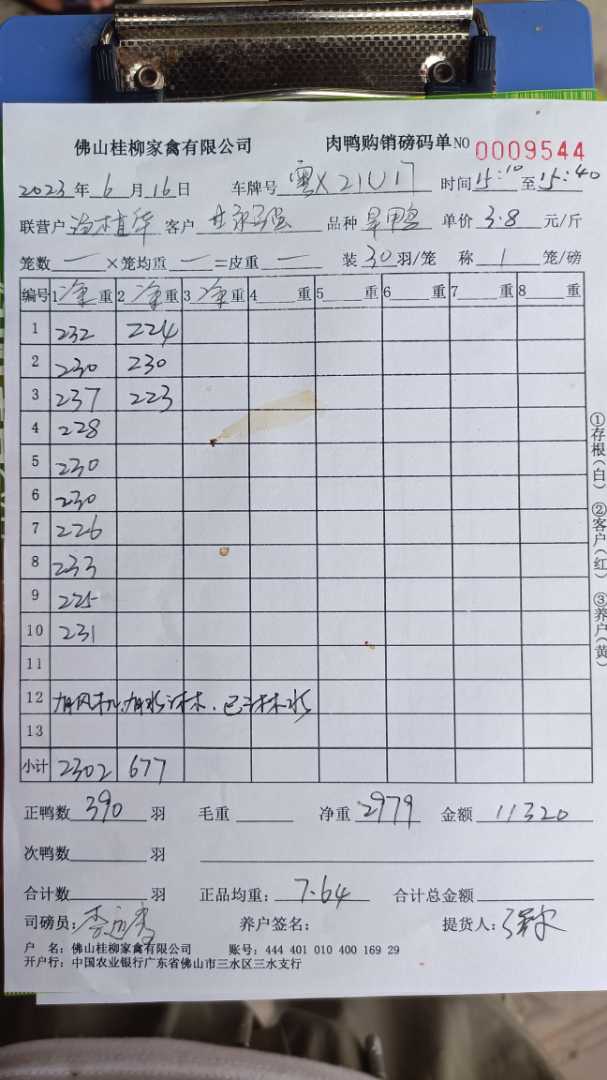 佛山桂柳家禽有限公司 肉鸭购销磅码单 NO 0009544
2023年6月16日 车牌号 粤X21U17 时间15:10至15:40
联营户 客户 品种 旱鸭 单价 3.8 元/斤
笼数 — ×笼均重 — =皮重 — 装30羽/笼 称 1 笼/磅
编号 1 净重 2 净重 3 净重 4 重 5 重 6 重 7 重 8 重
1 232 224
2 230 230
3 237 223
4 228
5 230
6 230
7 226
8 233
9 225
10 231
11
12 有风机,有水淋,已淋水
13
小计 2302 677
正鸭数 390 羽 毛重 净重 2979 金额 11320
次鸭数 羽
合计数 羽 正品均重: 7.64 合计总金额
司磅员: 养户签名: 提货人:
户 名: 佛山桂柳家禽有限公司 账号: 444 401 010 400 169 29
开户行: 中国农业银行广东省佛山市三水区三水支行
①存根(白) ②客户(红) ③养户(黄)